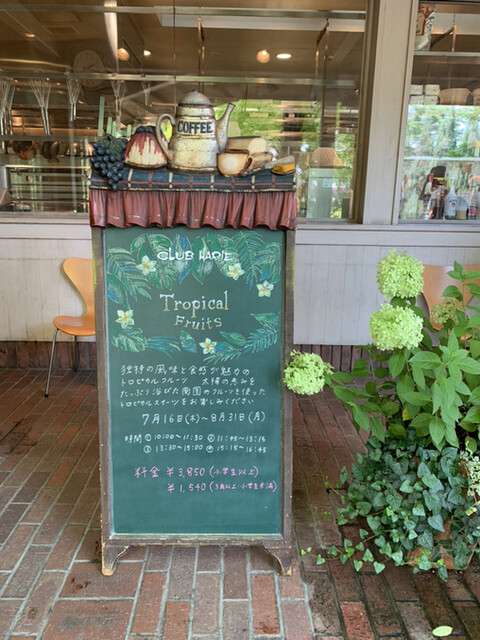 COFFEE
CLUB HARIE
Tropical
Fruits
独特の風味と食感が魅力の
トロピカルフルーツ 太陽の恵みを
たっぷり浴びた南国のフルーツを使った
トロピカルスイーツをお楽しみください
7月16日(木)〜8月31日(月)
時間 ①10:00〜11:30 ②11:45〜13:15
③13:30〜15:00 ④15:15〜16:45
料金 ¥3,850(小学生以上)
¥1,540(3歳以上・小学生未満)